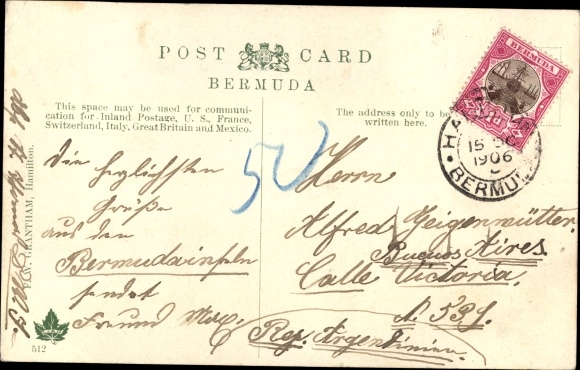 POST CARD
BERMUDA
This space may be used for communi-
cation for Inland Postage, U. S., France,
Switzerland, Italy, Great Britain and Mexico.
The address only to be
written here.
BERMUDA
HA
15
1906
BERMU
50
Die herzlichsten
Grüße
aus den
Bermudainseln
sendet
Freund Max.
Herrn
Alfred Geigenmütter.
Buenos Aires.
Calle Victoria.
Rep. Argentinien.
F. W. GRANTHAM, Hamilton.
512